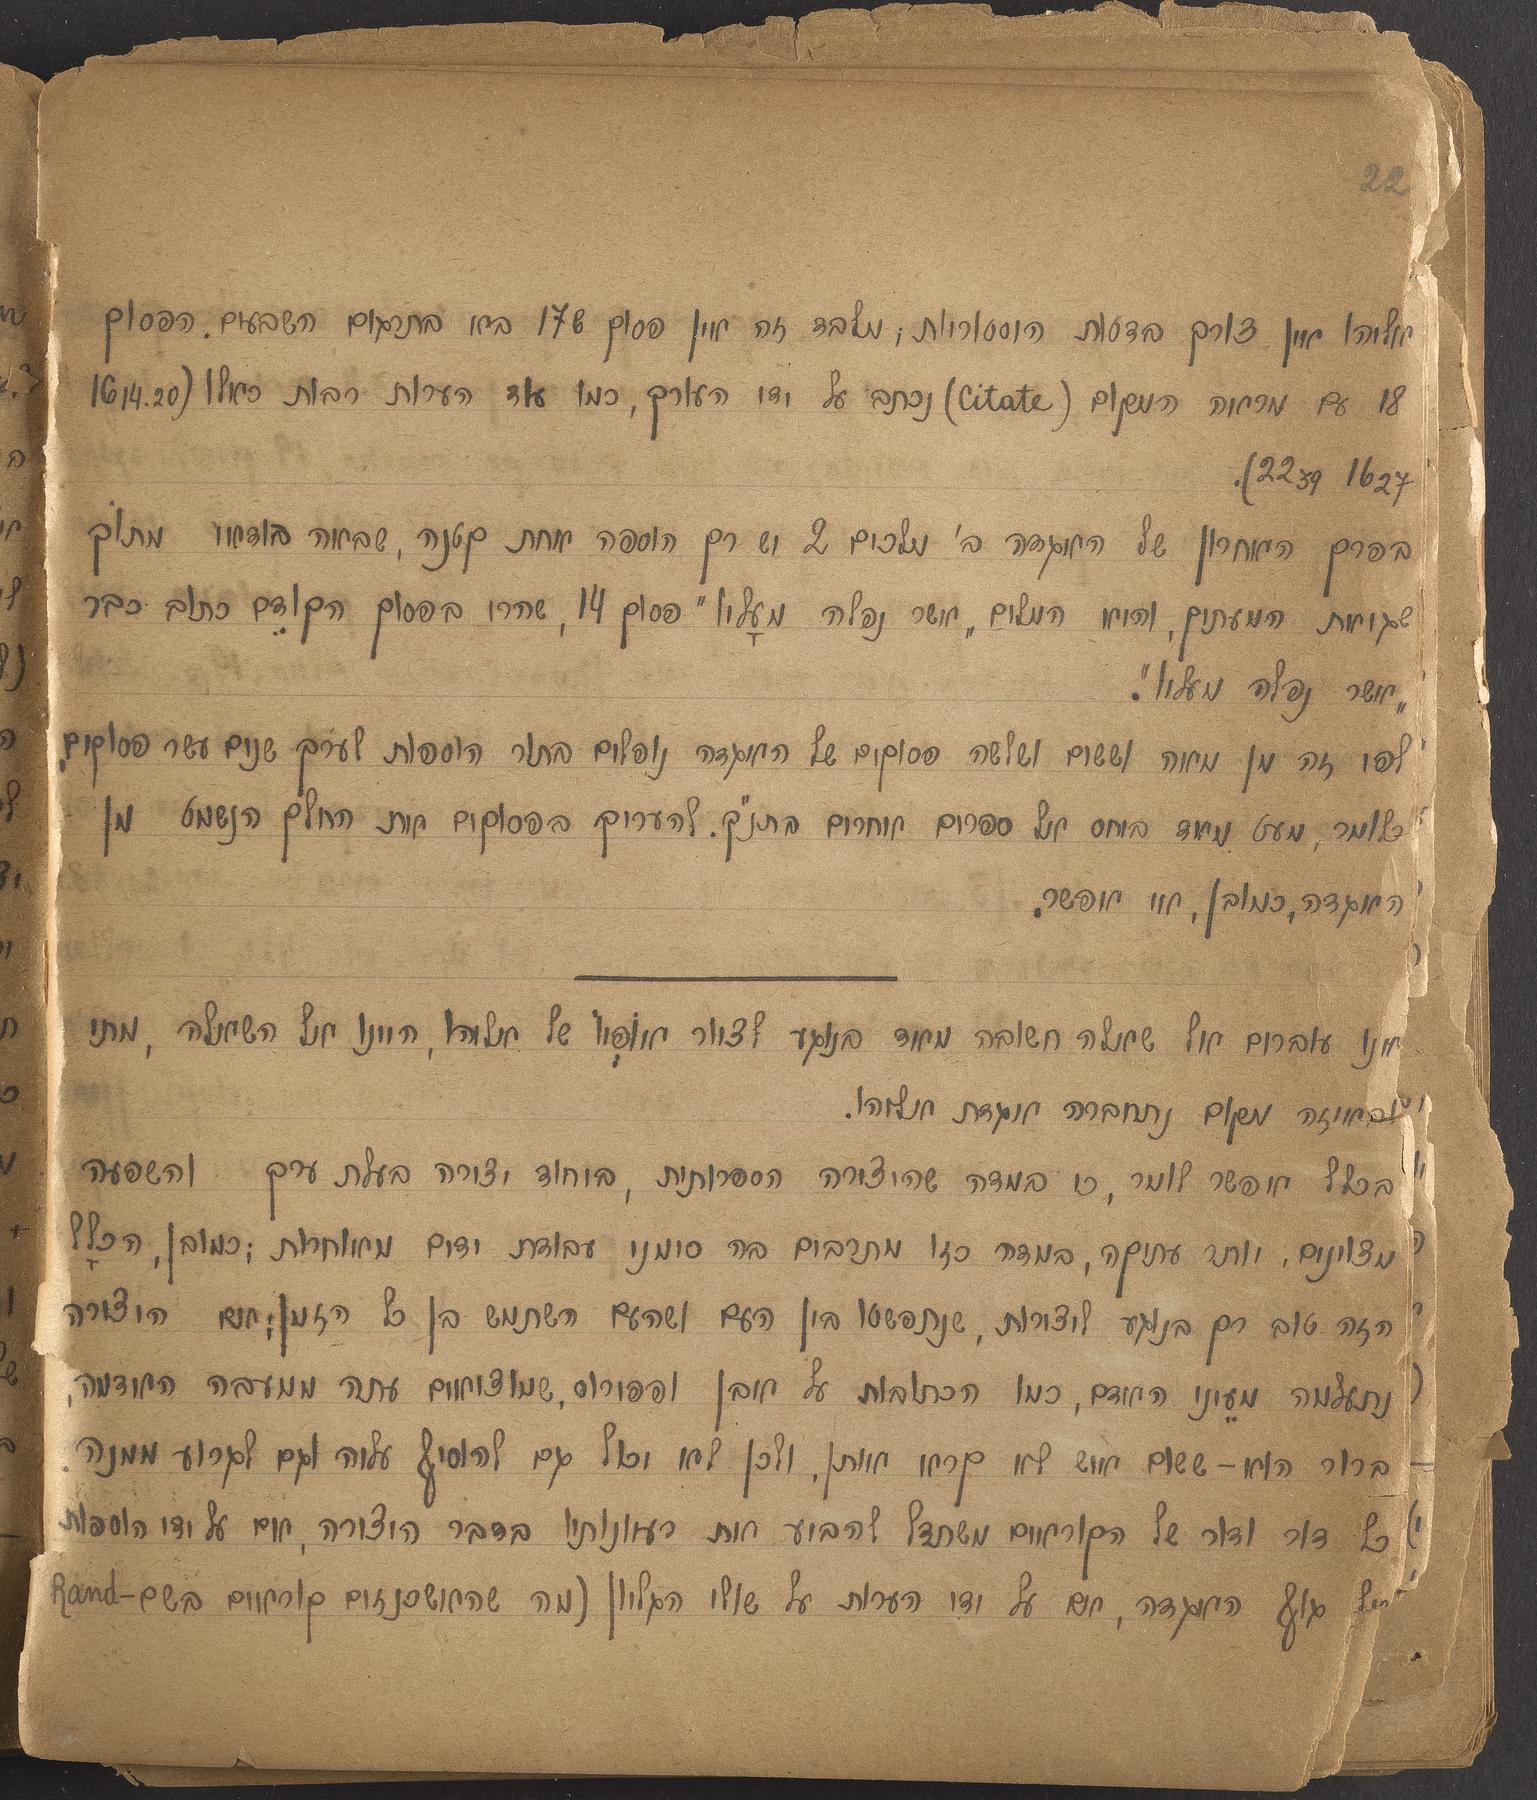 22
אליהו אין צורך בדסות היסטוריות; מלבד זה אין פסוק 17b בא בתרגום השבעים. הפסוק
18 עם מראה המקום (Citate) נכתב על ידי העורך, כמו עוד הערות רבות כאלו (16 14.20
16 27 22 39).
בפרק האחרון של האגדה ב׳ מלכים 2 יש רק הוספה אחת קטנה, שבאה בודאי מתוך
שגיאת המעתיק, והיא המלים „אשר נפלה מעָליו״ פסוק 14, שהרי בפסוק הקודֵם כתוב כבר
„אשר נפלה מעליו״.
לפי זה מן מאה וששים ושלשה פסוקים של האגדה נופלים בתור הוספות לערך שנים עשר פסוקים,
כלומר, מעט מאד ביחס אל ספרים אחרים בתנ״ך. להעריך בפסוקים את החלק הנשמט מן
האגדה, כמובן, אי אפשר.
אנו עוברים אל שאלה חשובה מאד בנוגע לציור אופיו של אליהו, היינו אל השאלה, מתי
ובאיזה מקום נתחברה אגדת אליהו.
בכלל אפשר לומר, כי במדה שהיצירה הספרותית, ביחוד יצירה בעלת ערך והשפעה
מצוינים, יותר עתיקה, במדה כזו מתרבים בה סימני עבודת ידים מאוחרות; כמובן, הכלָל
הזה טוב רק בנוגע ליצירות, שנתפשטו בין העם ושהעם השתמש בהן כל הזמן; אם היצירה
נתעלמה מעֵיני האדם, כמו הכתובות על אבן ופפירוס, שמוציאים עתה ממעבה האדמה,
ברור הוא – ששום איש לא קרא אותן, ולכן לא יכול גם להוסיף עליה וגם לגרוע ממנה.
כל דור ודור של הקוראים משתדל להביע את רעיונותיו בדבר היצירה, אם על ידי הוספות
אל גוף האגדה, אם על ידי הערות על שולי הגליון (מה שהאשכנזים קוראים בשם Rand-